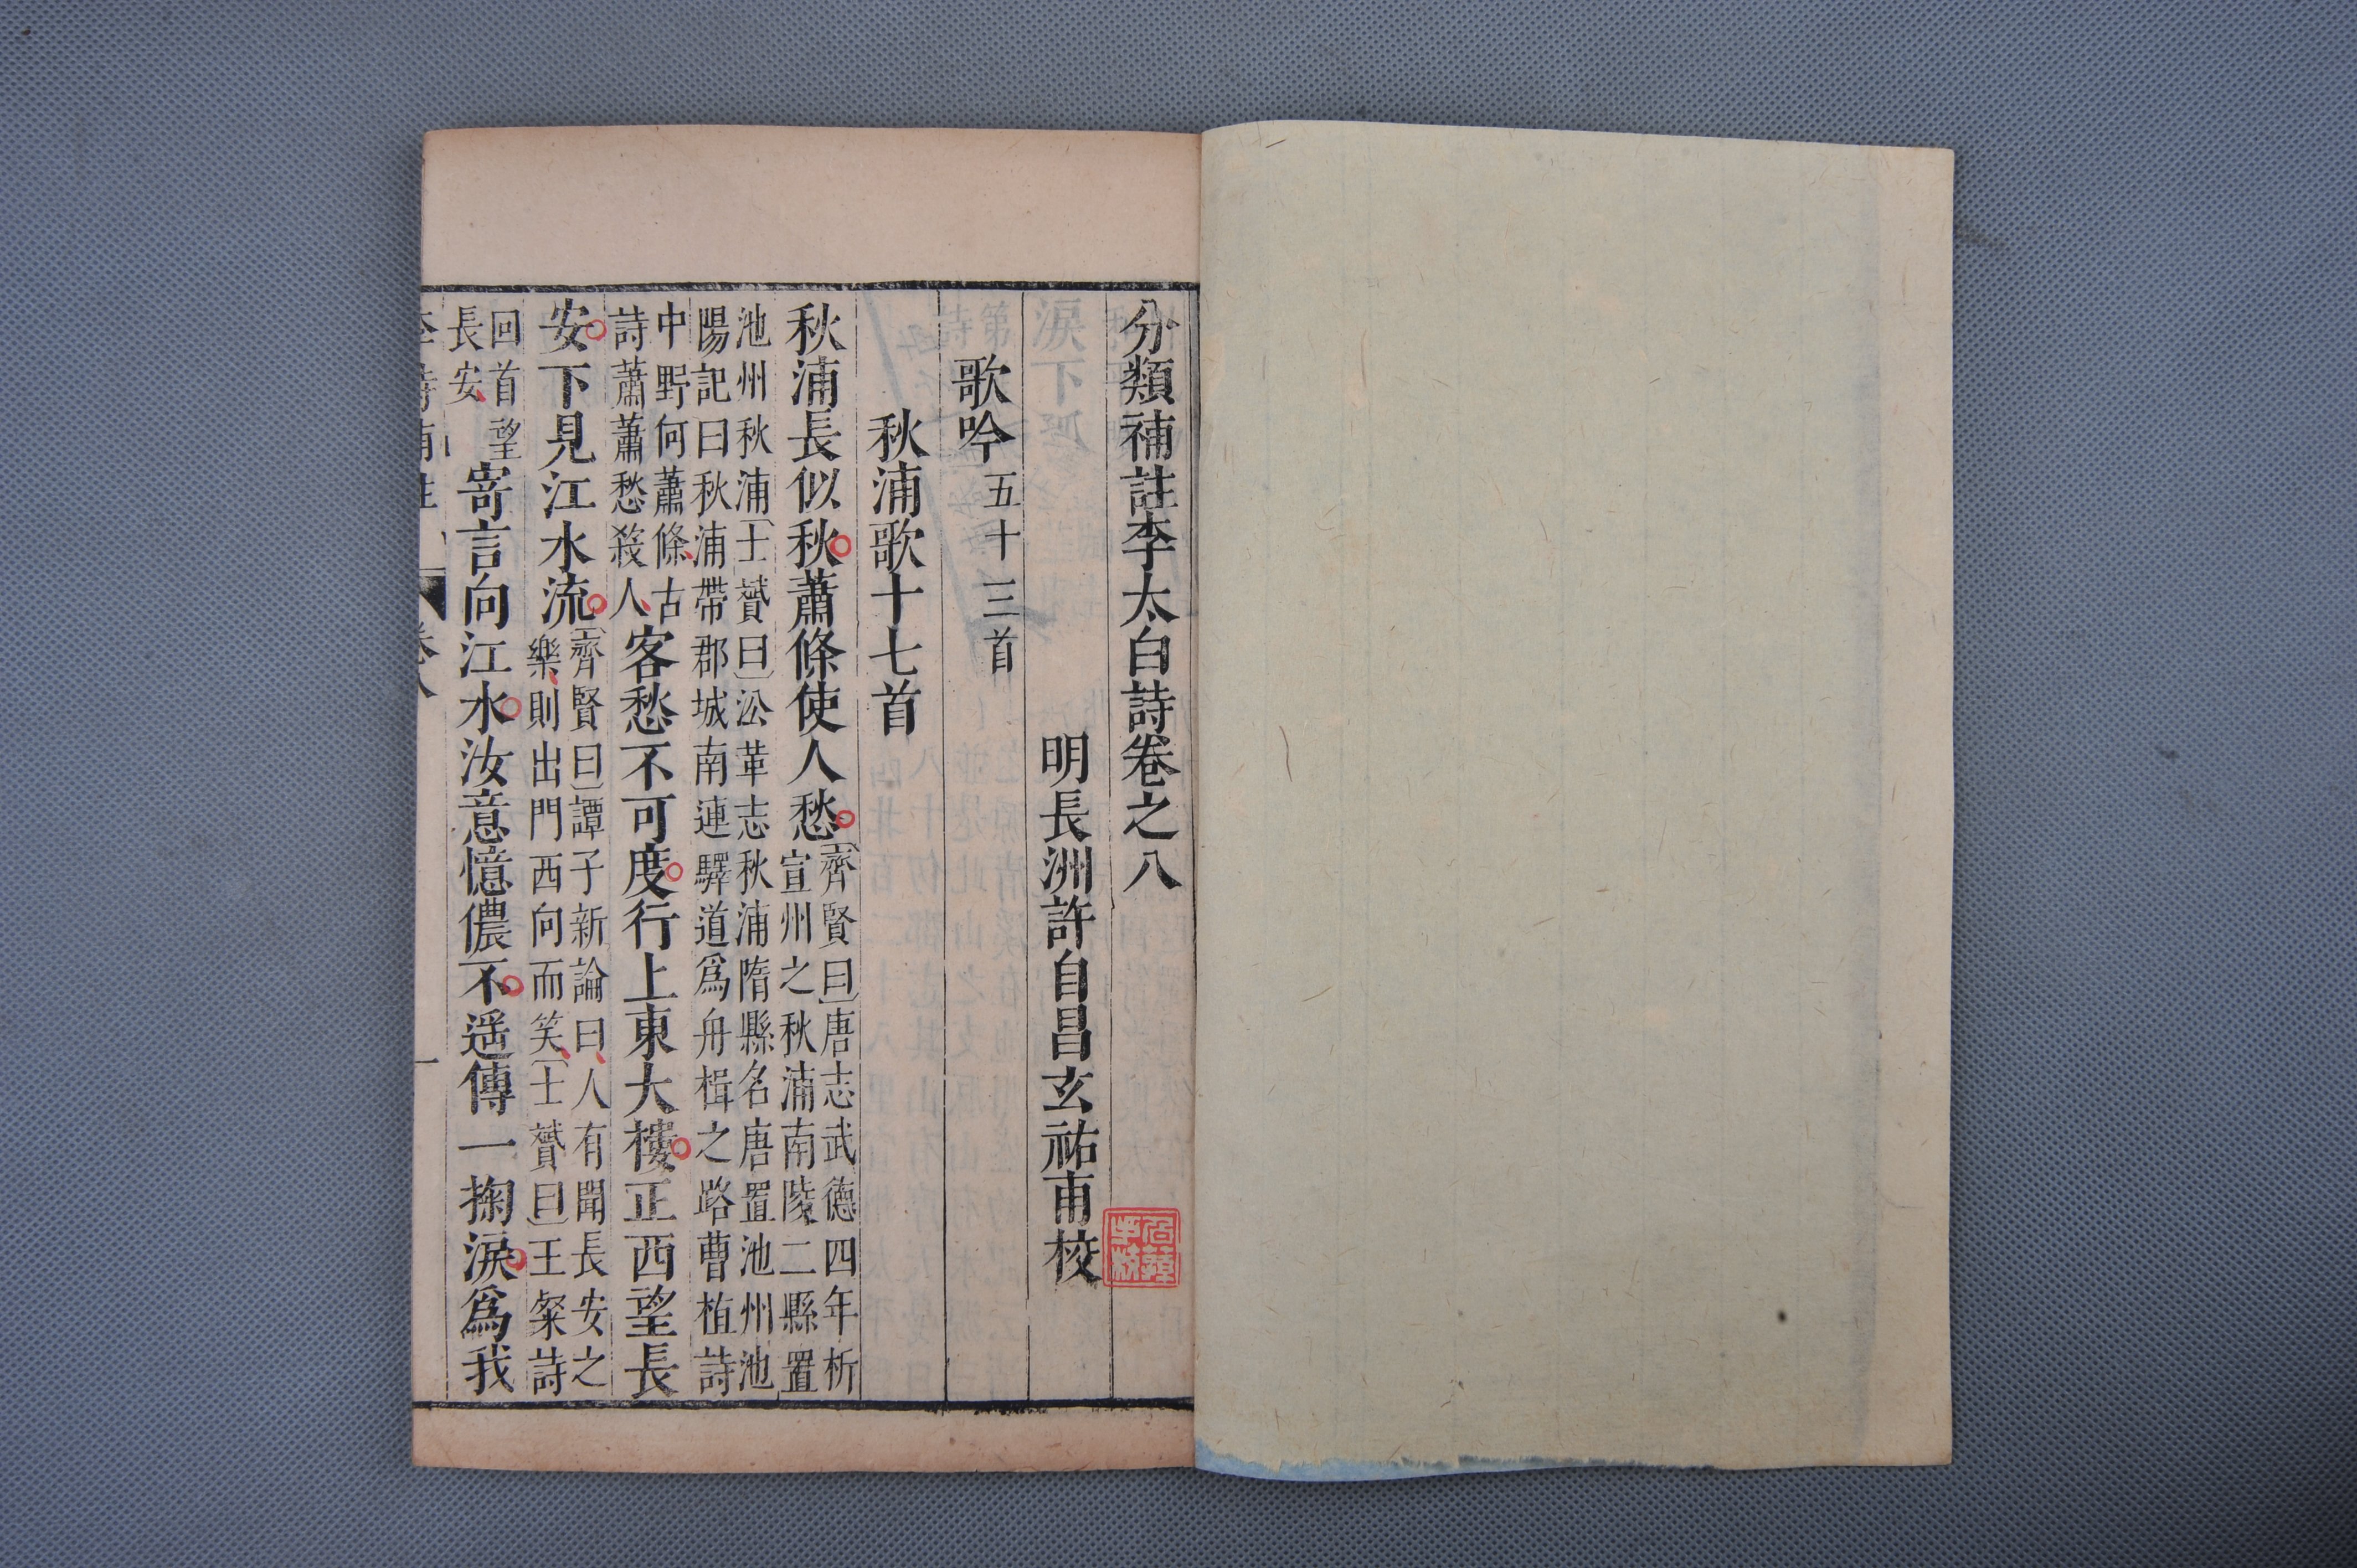 分類補註李太白詩卷之八
明長洲許自昌玄祐甫校
歌吟五十三首
秋浦歌十七首
秋浦長似秋蕭條使人愁
齊賢曰唐志武德四年析
宣州之秋浦南陵二縣置
池州秋浦士贇曰㳂革志秋浦隋縣名唐置池州池
陽記曰秋浦帶郡城南連驛道爲舟楫之路曹植詩
中野何蕭條古
詩蕭蕭愁殺人
客愁不可度行上東大樓正西望長
安下見江水流
齊賢曰譚子新論曰人有聞長安之
樂則出門西向而笑士贇曰王粲詩
回首望
長安
寄言向江水汝意憶儂不遥傳一掬淚爲我
卷八
一